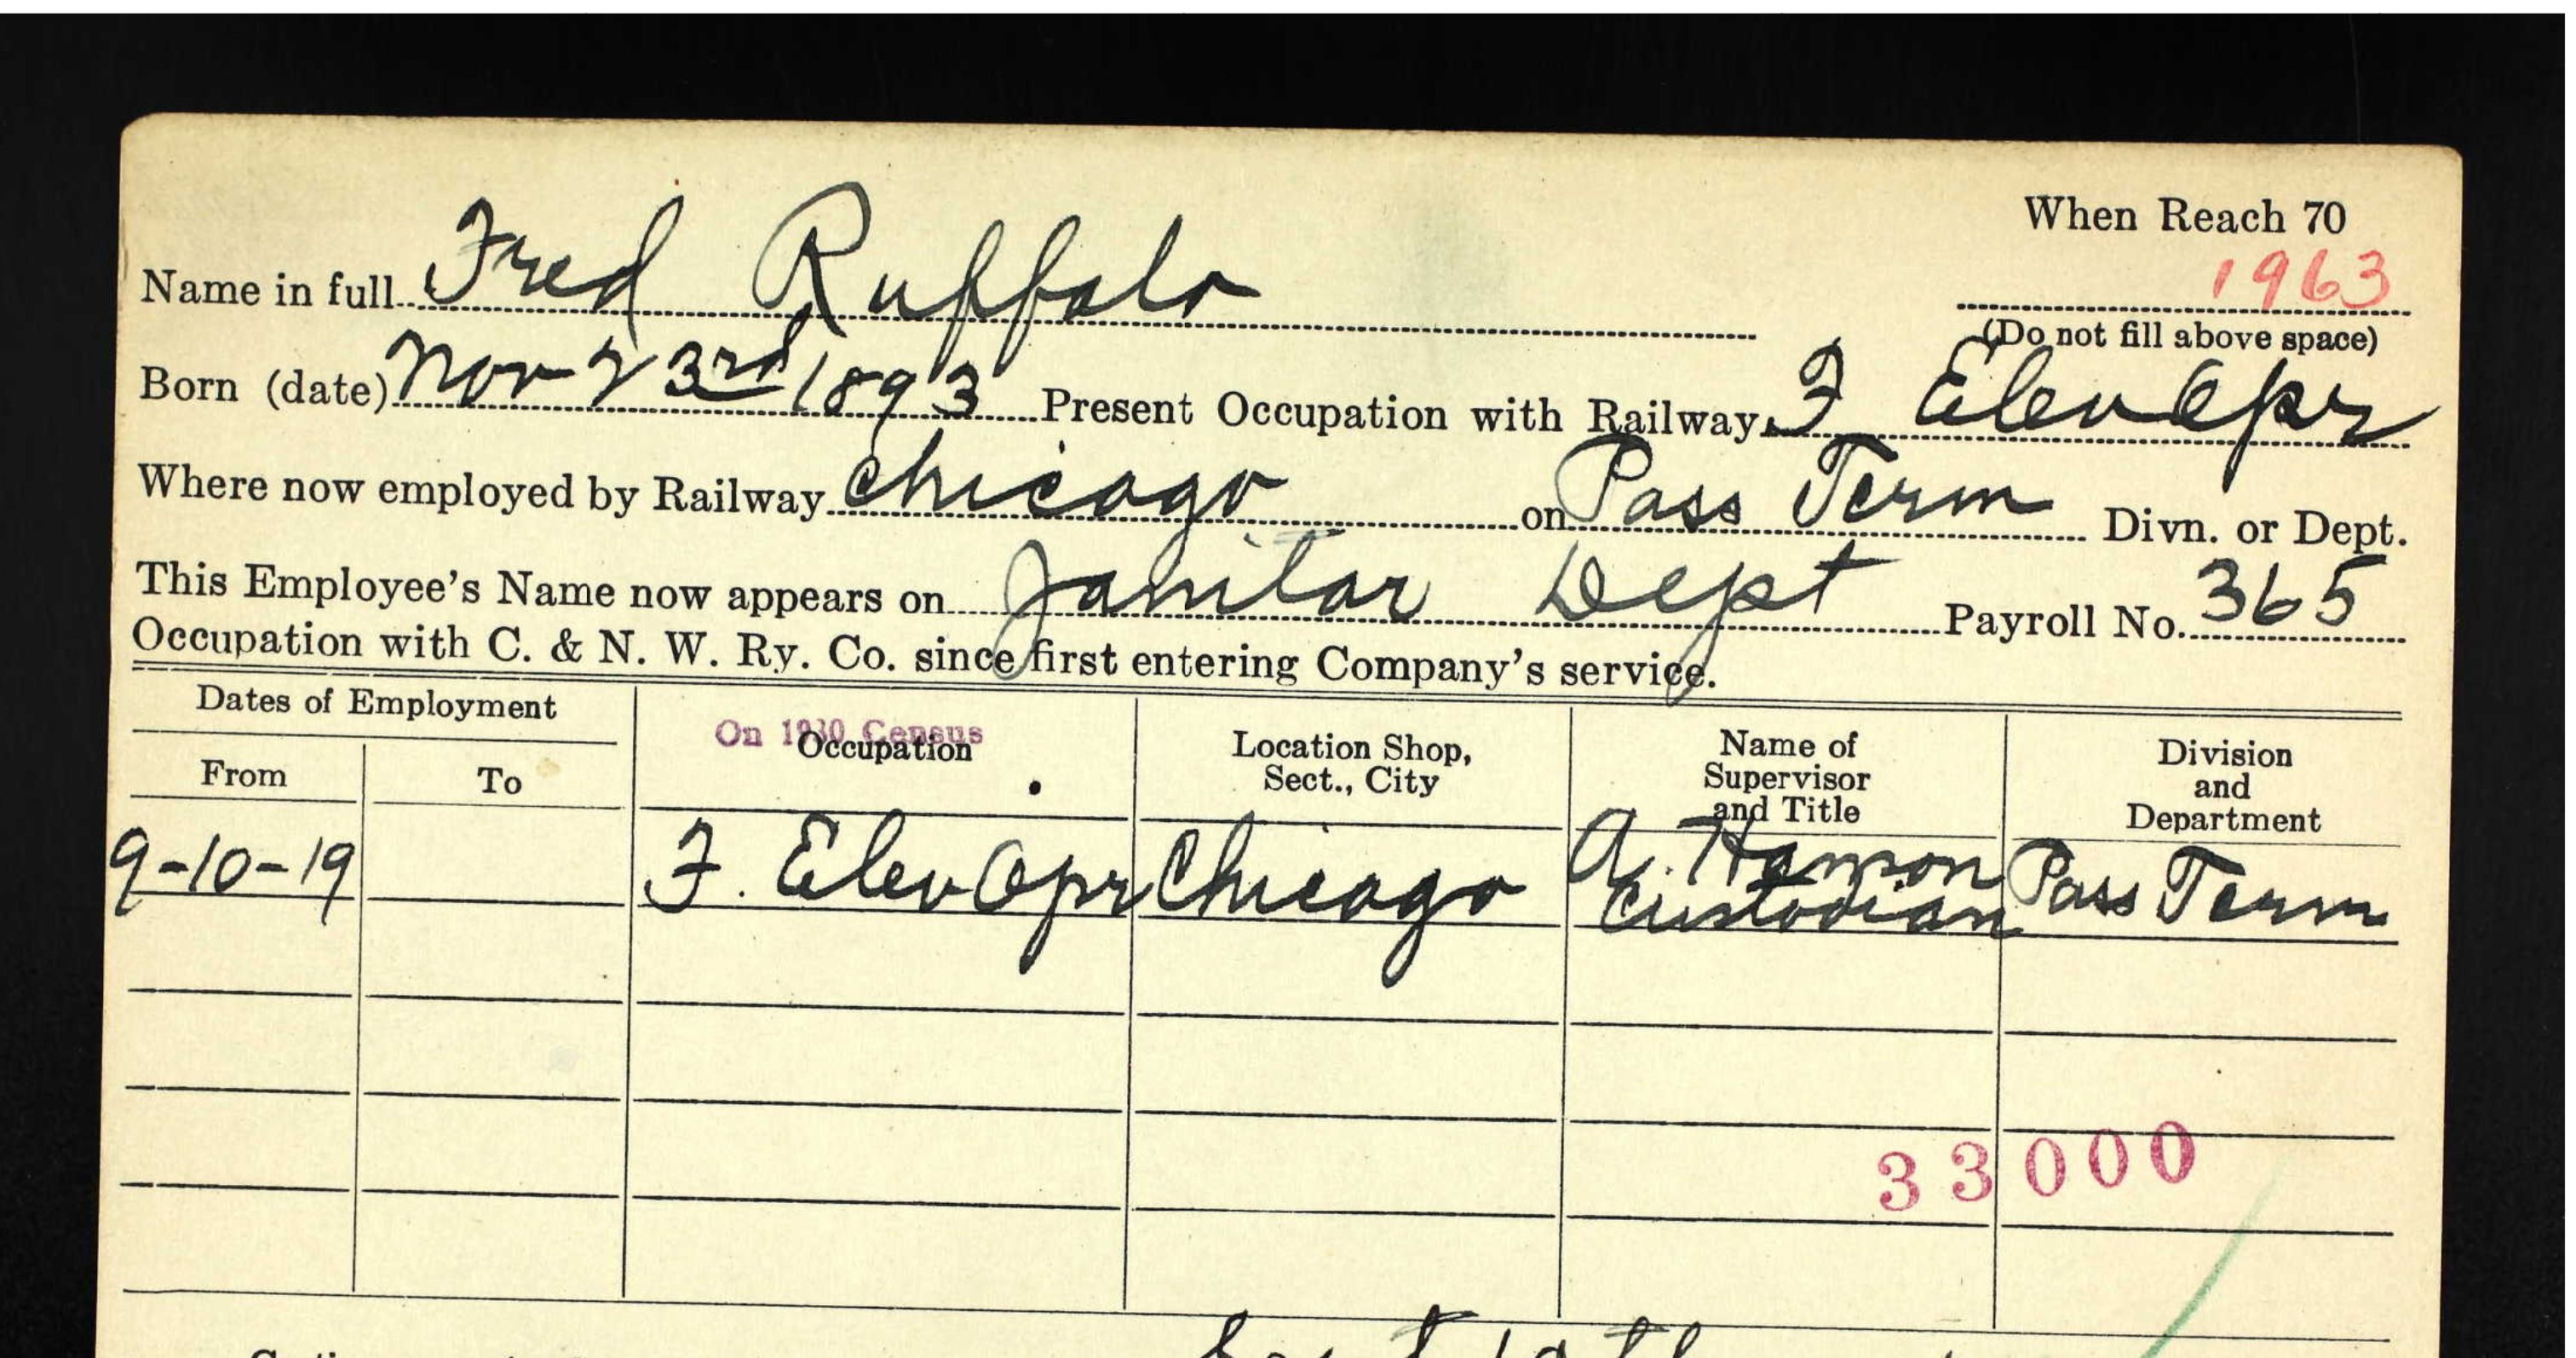 When Reach 70
Name in full Fred Ruffalo 1963
(Do not fill above space)
Born (date) Nov 23rd 1893 Present Occupation with Railway F Elev Opr
Where now employed by Railway Chicago on Pass Term Divn. or Dept.
This Employee's Name now appears on Janitor Dept Payroll No. 365
Occupation with C. & N. W. Ry. Co. since first entering Company's service.
Dates of Employment
On 1930 Census
From To Occupation Location Shop, Sect., City Name of Supervisor and Title Division and Department
9-10-19 F. Elev Opr Chicago A. Hanson Custodian Pass Term
33000
Sept 10th